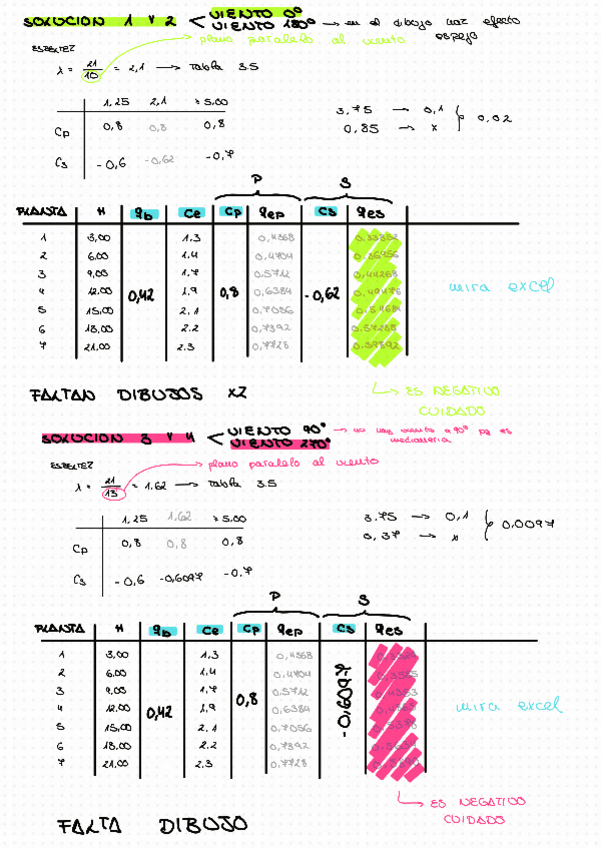 SOLUCION 1 Y 2 < VIENTO 0º
VIENTO 180º → en el dibujo haz efecto espejo
plano paralelo al viento
ESBELTEZ
λ = 21/10 = 2,1 → Tabla 3.5
1,25 2,1 ≥ 5.00
Cp 0,8 0,8 0,8
Cs -0,6 -0,62 -0,7
3.75 → 0,1
0,85 → x
0,02
P S
PLANTA H qb Ce Cp qep Cs qes
1 3,00 1,3 0,4368
2 6.00 1,4 0,4704
3 9,00 1,7 0,5712
4 12.00 0,42 1,9 0,8 0,6384 -0,62
5 15,00 2,1 0,7056
6 18,00 2.2 0,7392
7 21,00 2.3 0,7728
mira excel
ES NEGATIVO
CUIDADO
FALTAN DIBUJOS X2
SOLUCION 3 Y 4 < VIENTO 90º → no hay viento a 90º pq es medianeria
VIENTO 270º
plano paralelo al viento
ESBELTEZ
λ = 21/13 = 1.62 → Tabla 3.5
1,25 1,62 ≥ 5.00
Cp 0,8 0,8 0,8
Cs -0,6 -0,6097 -0,7
3.75 → 0,1
0,37 → x
0,0097
P S
PLANTA H qb Ce Cp qep Cs qes
1 3,00 1,3 0,4368
2 6.00 1,4 0,4704
3 9,00 1,7 0,5712
4 12.00 0,42 1,9 0,8 0,6384 -0,6097
5 15,00 2,1 0,7056
6 18,00 2.2 0,7392
7 21,00 2.3 0,7728
mira excel
ES NEGATIVO
CUIDADO
FALTA DIBUJO